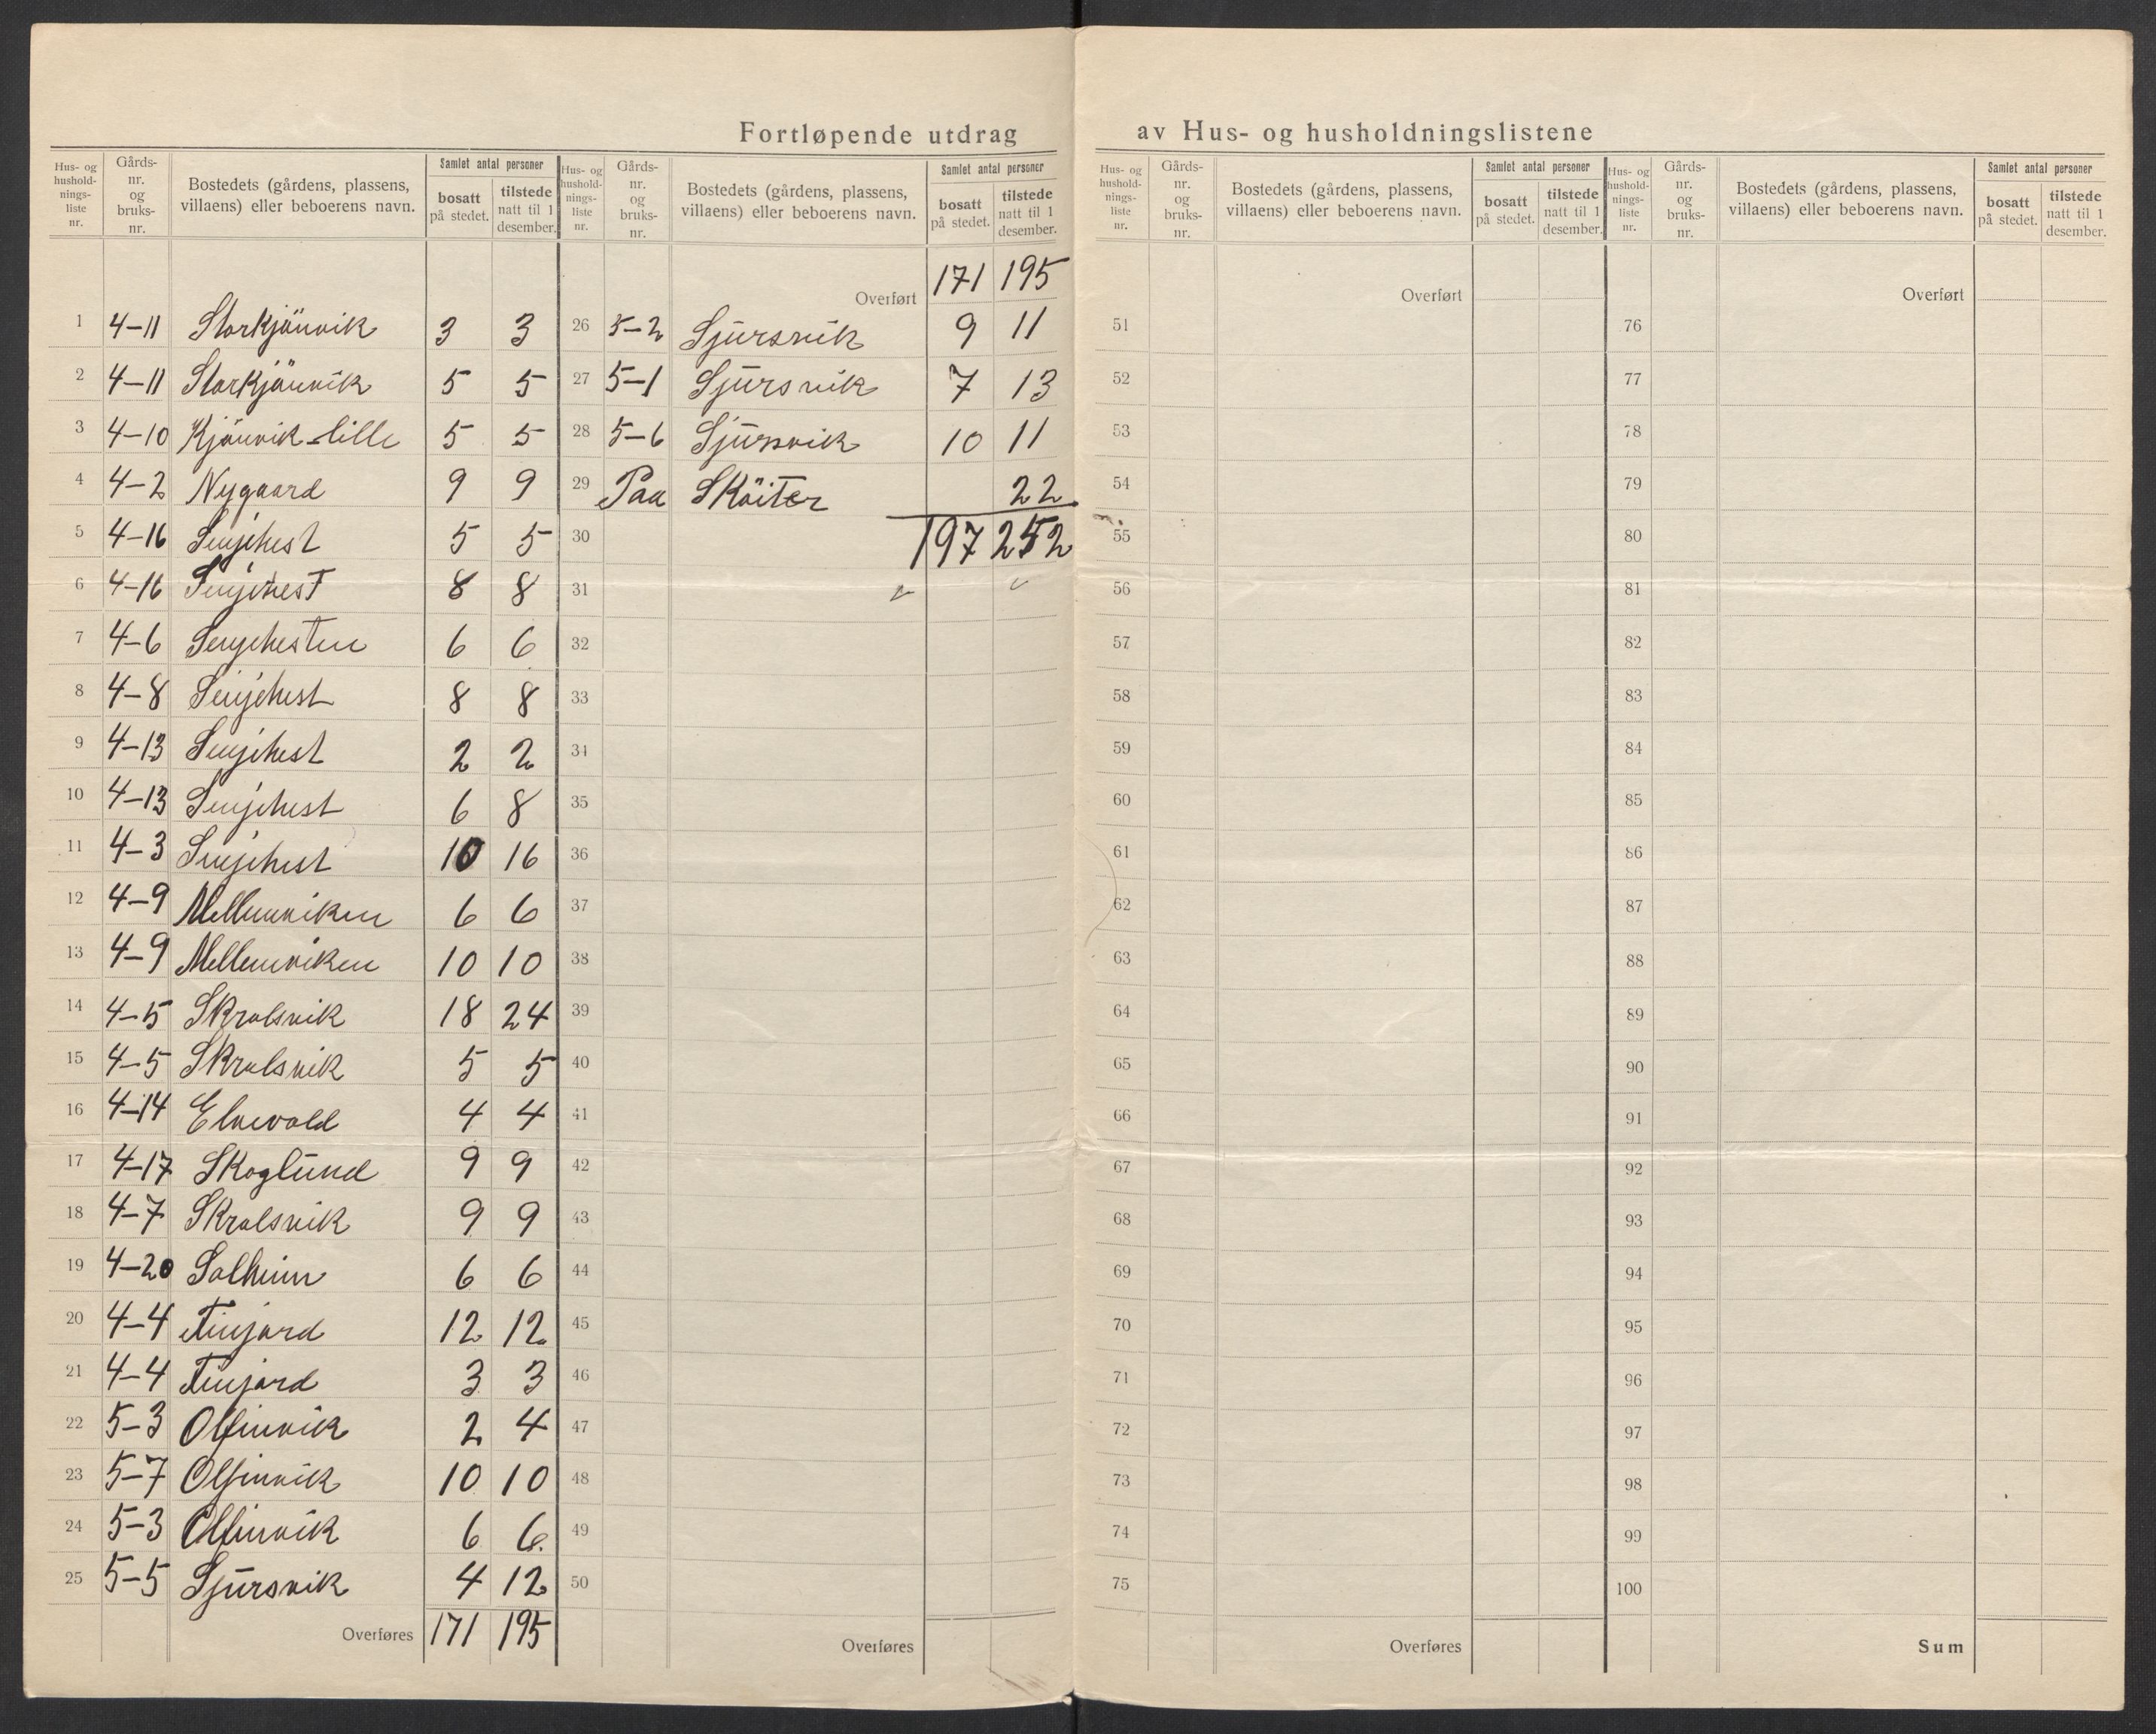 Fortløpende utdrag av Hus- og husholdningslistene
Hus- og husholdnings-liste nr. | Gårds-nr. og bruks-nr. | Bostedets (gårdens, plassens, villaens) eller beboerens navn. | Samlet antal personer | bosatt på stedet. | tilstede natt til 1 desember.
1 4-11 Storkjönvik 3 3
2 4-11 Storkjönvik 5 5
3 4-10 Kjönvik-lille 5 5
4 4-2 Nygaard 9 9
5 4-16 Senjehest 5 5
6 4-16 Senjehest 8 8
7 4-6 Senjehesten 6 6
8 4-8 Senjehest 8 8
9 4-13 Senjehest 2 2
10 4-13 Senjehest 6 8
11 4-3 Senjehest 10 16
12 4-9 Mellemviken 6 6
13 4-9 Mellemviken 10 10
14 4-5 Skrolsvik 18 24
15 4-5 Skrolsvik 5 5
16 4-14 Elvevold 4 4
17 4-17 Skoglund 9 9
18 4-7 Skrolsvik 9 9
19 4-20 Solheim 6 6
20 4-4 Finjord 12 12
21 4-4 Finjord 3 3
22 5-3 Olfinvik 2 4
23 5-7 Olfinvik 10 10
24 5-3 Olfinvik 6 6
25 5-5 Sjursvik 4 12
Overføres 171 195
Hus- og husholdnings-liste nr. | Gårds-nr. og bruks-nr. | Bostedets (gårdens, plassens, villaens) eller beboerens navn. | Samlet antal personer | bosatt på stedet. | tilstede natt til 1 desember.
Overført 171 195
26 5-2 Sjursvik 9 11
27 5-1 Sjursvik 7 13
28 5-6 Sjursvik 10 11
29 Paa Sköiter 22
30 197 252
31
32
33
34
35
36
37
38
39
40
41
42
43
44
45
46
47
48
49
50
Overføres
Hus- og husholdnings-liste nr. | Gårds-nr. og bruks-nr. | Bostedets (gårdens, plassens, villaens) eller beboerens navn. | Samlet antal personer | bosatt på stedet. | tilstede natt til 1 desember.
Overført
51
52
53
54
55
56
57
58
59
60
61
62
63
64
65
66
67
68
69
70
71
72
73
74
75
Overføres
Hus- og husholdnings-liste nr. | Gårds-nr. og bruks-nr. | Bostedets (gårdens, plassens, villaens) eller beboerens navn. | Samlet antal personer | bosatt på stedet. | tilstede natt til 1 desember.
Overført
76
77
78
79
80
81
82
83
84
85
86
87
88
89
90
91
92
93
94
95
96
97
98
99
100
Sum